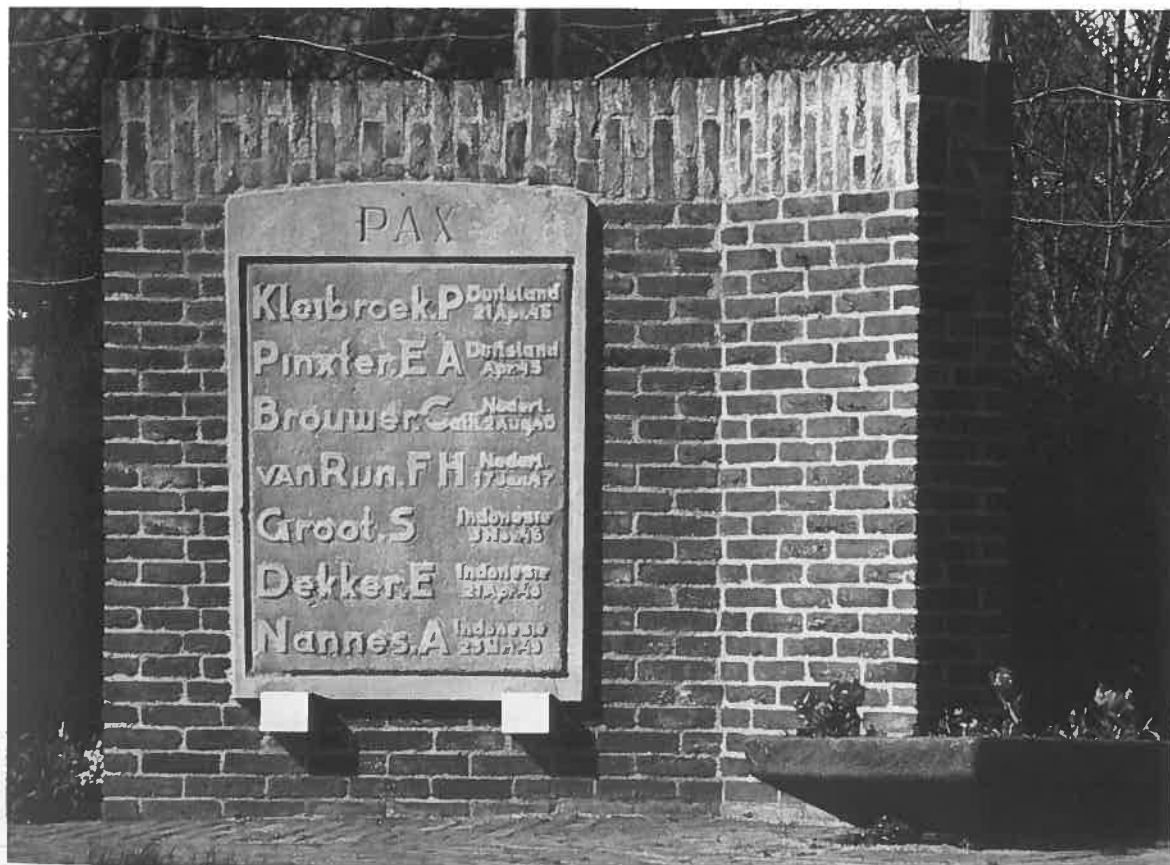 PAX
Kleibroek.P Duitsland
21 Apr.45
Pinxter.E A Duitsland
Apr.45
Brouwer.C Nederl.
van Rijn.F H Nederl.
17 Jan.47
Groot.S Indonesie
Dekker.E Indonesie
21 Apr.48
Nannes.A Indonesie